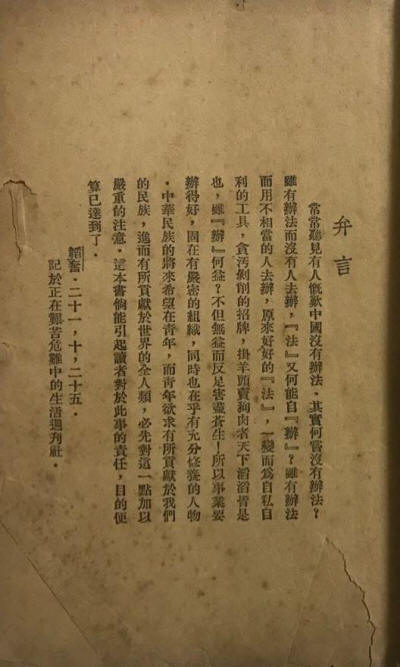 弁言
常常聽見有人慨歎中國沒有辦法。其實何嘗沒有辦法？
雖有辦法而沒有人去辦，『法』又何能自『辦』？雖有辦法
而用不相當的人去辦，原來好好的『法』，一變而爲自私自
利的工具，貪汚剝削的招牌，掛羊頭賣狗肉者天下滔滔皆是
也，雖『辦』何益？不但無益而反足害盡蒼生！所以事業要
辦得好，固在有嚴密的組織，同時也在乎有充分修養的人物
。中華民族的將來希望在青年，而青年欲求有所貢獻於我們
的民族，進而有所貢獻於世界的全人類，必先對這一點加以
嚴重的注意。這本書倘能引起讀者對於此事的責任，目的便
算已達到了。
韜奮。二十一，十，二十五。
記於正在艱苦危難中的生活週刊社。